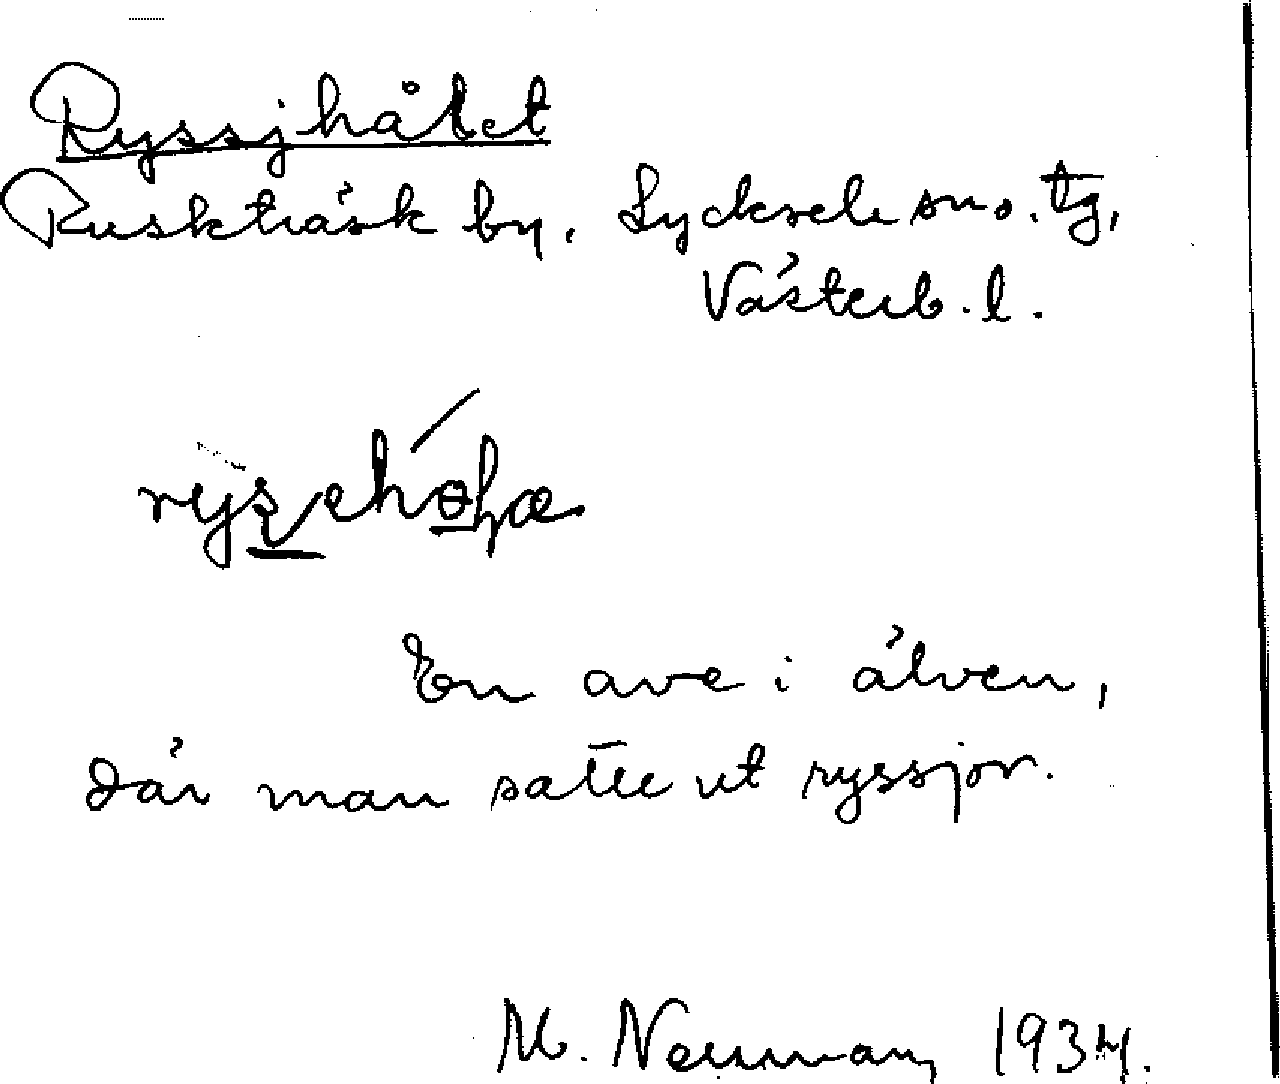 Ryssjhålet
Ruskträsk by. Lycksele sns. tg,
Västerb. l.
En ave i älven,
där man satte ut ryssjor.
M. Neuman, 1934.